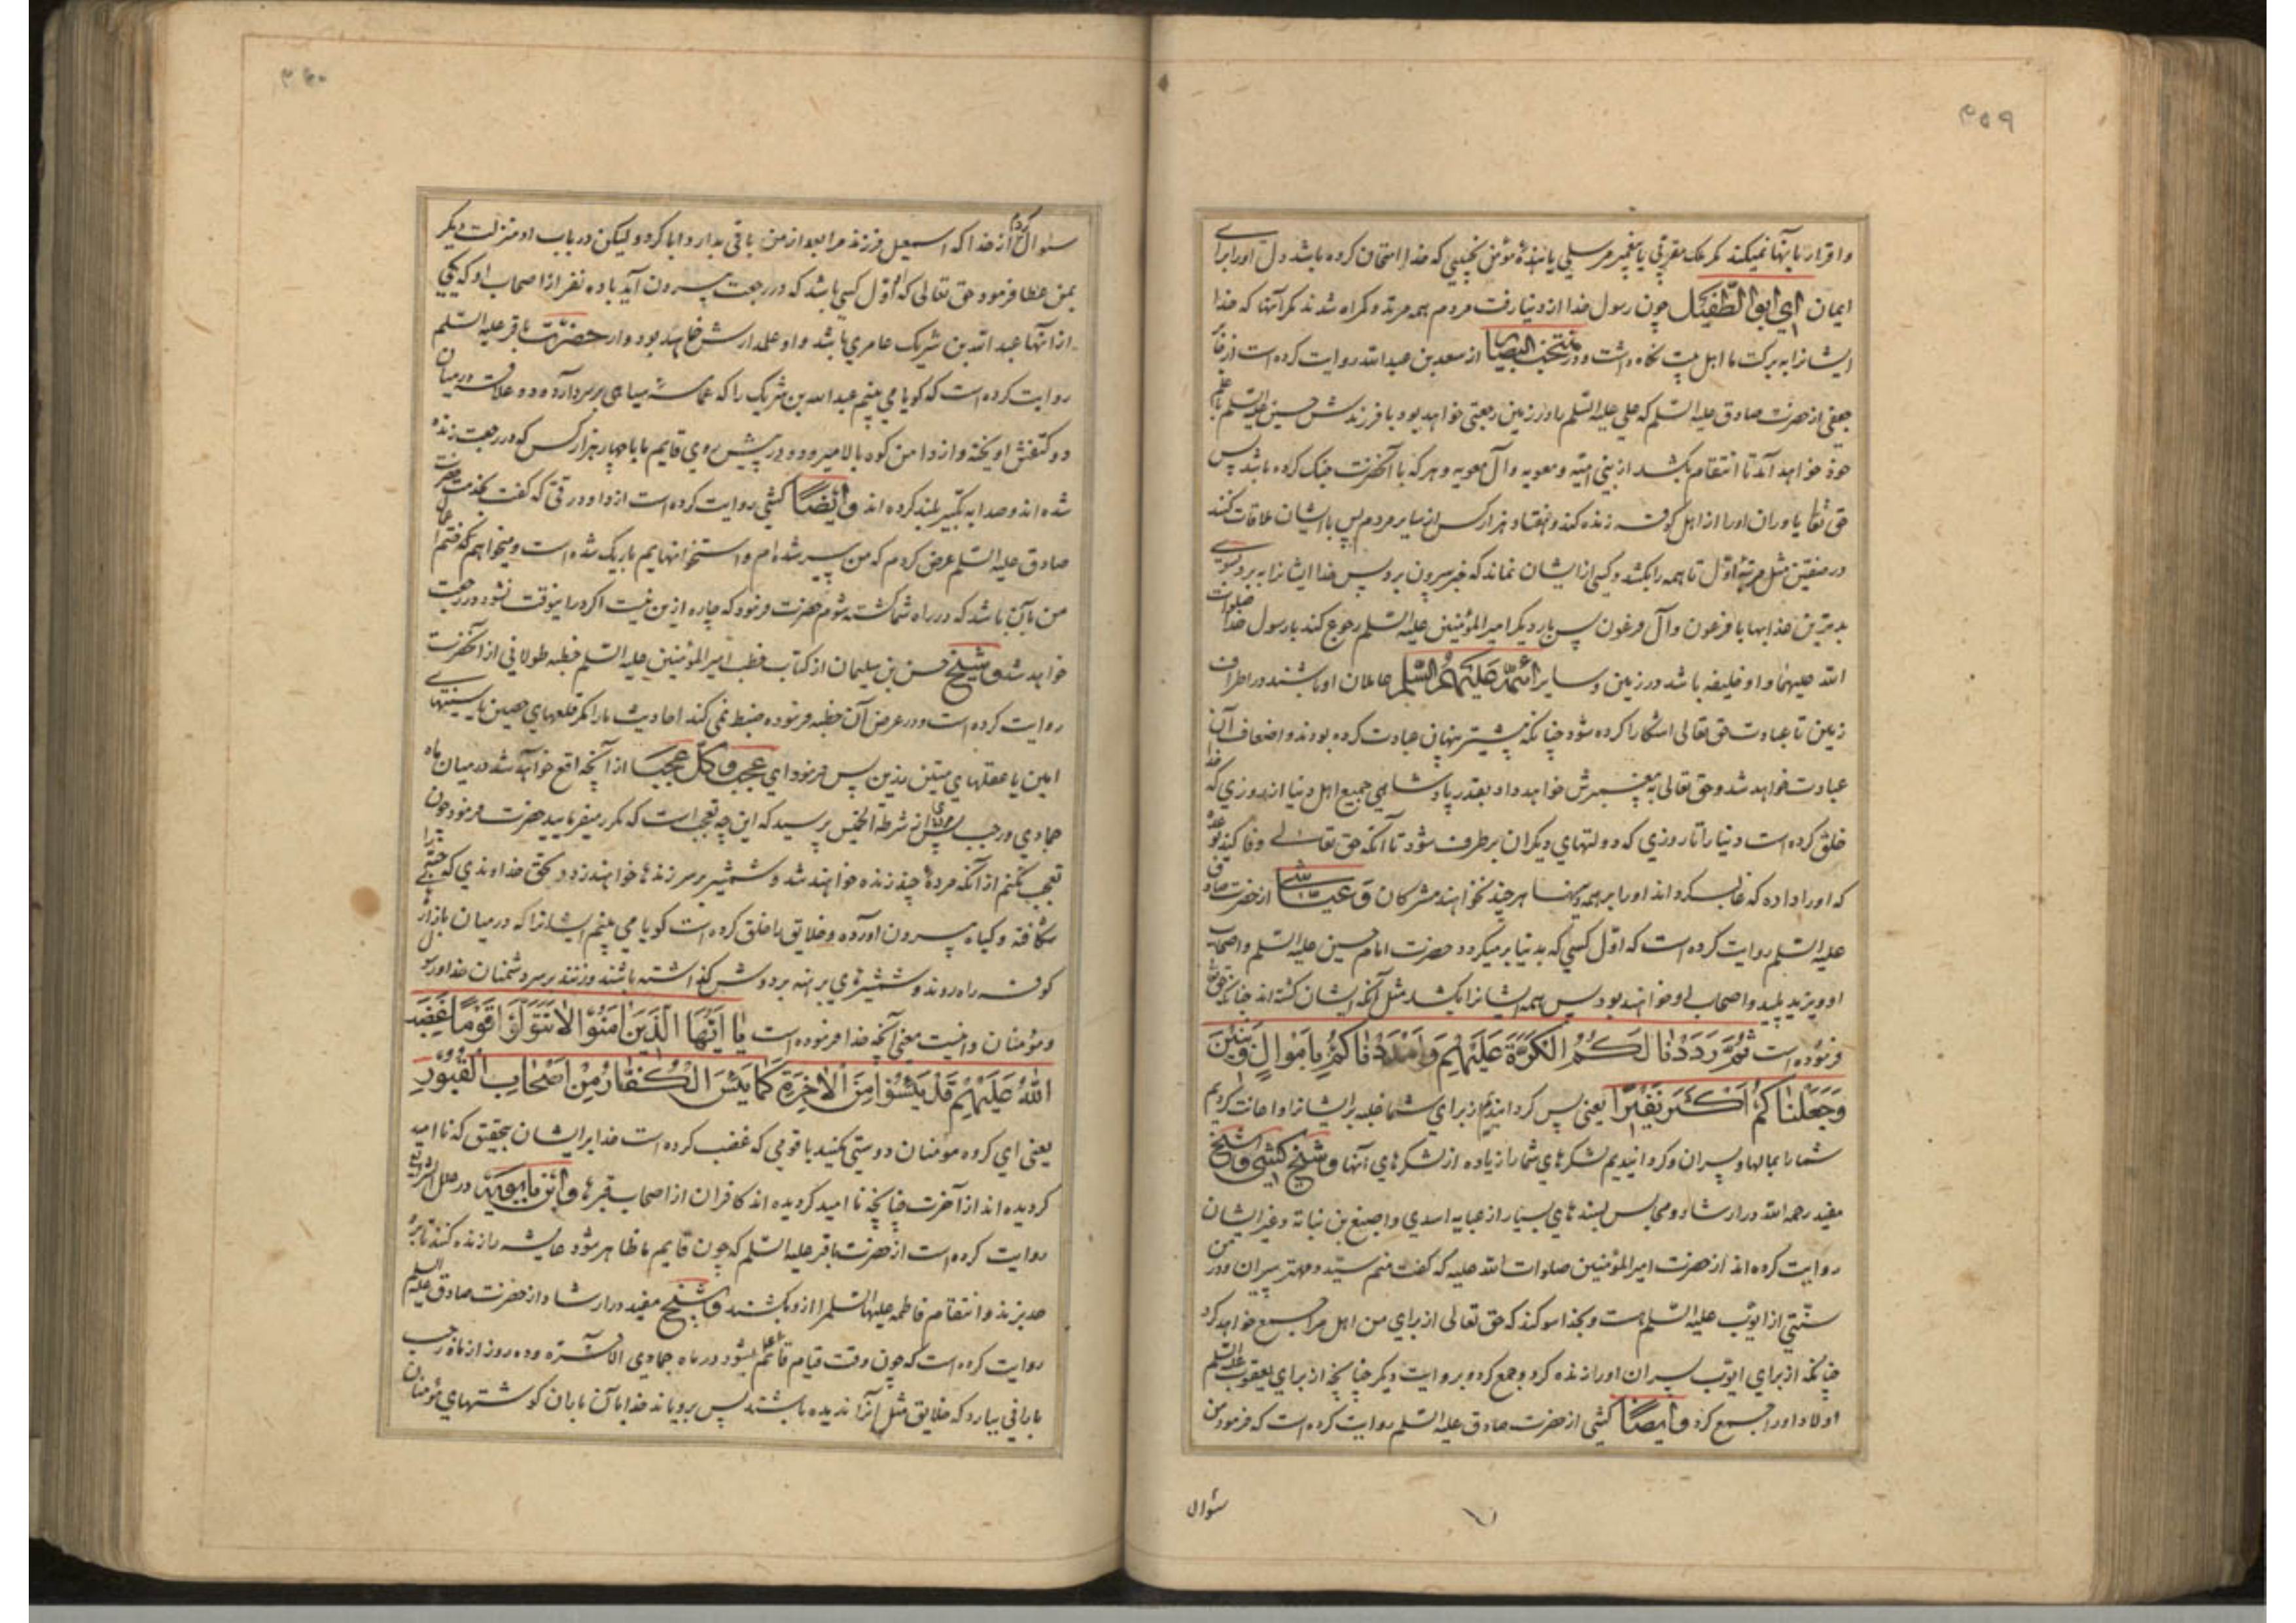 ۳۵۹
و اقرار باینها نمیکند مگر ملک مقربی یا پیغمبر مرسلی یا بندهٔ مؤمن نجیبی که خدا امتحان کرده باشد دل او را برای
ایمان ای ابو الطفیل چون رسول خدا از دنیا رفت مردم همه مرتد و گمراه شدند مگر آنها که خدا
ایشانرا به برکت ما اهل بیت نگاه داشت و در منتخب البصایر از سعد بن عبدالله روایت کرده است از جابر
جعفی از حضرت صادق علیه السلم که علی علیه السلم را در زمین رجعتی خواهد بود با فرزندش حسین علیه السلم با علم
خود خواهد آمد تا انتقام بکشد از بنی امیه و معویه و آل معویه و هر که با آنحضرت جنک کرده باشد پس
حق تعا یاوران او را از اهل کوفه زنده کند و هفتاد هزار کس از سایر مردم پس با ایشان ملاقات کنند
در صفین مثل مرتبهٔ اوّل تا همه را بکشد و کسی از ایشان نماند که خبر بیرون برد پس خدا ایشانرا به برد بسوی
بدترین عذابها با فرعون و آل فرعون پس بار دیکر امیر المؤمنین علیه السلم رجوع کند با رسول خدا صلوات
الله علیهما و او خلیفه باشد در زمین و سایر ائمه علیهم السلم عاملان او باشند در اطراف
زمین تا عبادت حق تعالی اشکارا کرده شود چنانکه پیشتر پنهان عبادت کرده بودند و اضعاف آن
عبادت خواهد شد و حق تعالی به پیغمبرش خواهد داد بقدر پادشاهی جمیع اهل دنیا از روزی که خدا
خلق کرده است دنیا را تا روزی که دولتهای دیکران برطرف شود تا آنکه حق تعالی وفا کند بوعده
که او را داده که غالب کرداند او را بر همه دینها هرچند نخواهند مشرکان و عیاشی از حضرت صادق
علیه السلم روایت کرده است که اوّل کسی که بدنیا برمیکردد حضرت امام حسین علیه السلم و اصحاب
او و یزید پلید و اصحاب او خواهند بود پس همه ایشانرا بکشد مثل آنکه ایشان کشته اند چنانکه حق تعا
فرموده است ثُمَّ رَدَدْنَا لَكُمُ الْكَرَّةَ عَلَيْهِمْ وَأَمْدَدْنَاكُمْ بِأَمْوَالٍ وَبَنِينَ
وَجَعَلْنَاكُمْ أَكْثَرَ نَفِيرًا یعنی پس کردانیدیم از برای شما غلبه بر ایشانرا و اعانت کردیم
شما را بمالها و پسران و کردانیدیم لشکرهای شما را زیاده از لشکرهای آنها و شیخ کشی و شیخ
مفید رحمه الله در ارشاد و مجالس بسندهای بسیار از عبایه اسدی و اصبغ بن نباته و غیر ایشان
روایت کرده اند از حضرت امیر المؤمنین صلوات الله علیه که کفت منم سیّد و مهتر پیران و در من
سنّتی از ایوب علیه السلم هست و بخدا سوکند که حق تعالی از برای من اهل مرا جمیع خواهد کرد
چنانکه از برای ایوب پسران او را زنده کرد و جمع کرد و بروایت دیکر چنانچه از برای یعقوب علیه السلم
اولاد او را جمیع کرد و ایضًا کشی از حضرت صادق علیه السلم روایت کرده است که فرمود من
سؤال
۳۶۰
سؤال کردم از خدا که اسمعیل فرزند مرا بعد از من باقی بدارد ابا کرد و لیکن در باب او منزلت دیکر
بمن عطا فرمود حق تعالی که اوّل کسی باشد که در رجعت بیرون آید با ده نفر از اصحاب او که یکی
از انها عبد الله بن شریک عامری باشد و او علمدارش خواهد بود و از حضرت باقر علیه السلم
روایت کرده است که کویا می بینم عبد الله بن شریک را که عمامهٔ سیاهی بر سر دارد و دو علاقه در میان
دو کتفش اویخته و از دامن کوه بالا میرود و در پیش روی قایم ما با چهار هزار کس که در رجعت زنده
شده اند و صدا به تکبیر بلند کرده اند و ایضًا کشی روایت کرده است از داود رقی که کفت بخدمت حضرت
صادق علیه السلم عرض کردم که من پیر شده ام و استخوانهایم باریک شده است و میخواهم که ختم اعمال
من بآن باشد که در راه شما کشته شوم حضرت فرمود که چاره از این نیست اکر در اینوقت نشود در رجعت
خواهد شد و شیخ حسن بن سلیمان از کتاب خطب امیر المؤمنین علیه السلم خطبه طولانی از آنحضرت
روایت کرده است و در عرض آن خطبه فرموده ضبط نمی کند احادیث ما را مکر قلعهای حصین یا سینهای
امین یا عقلهای متین رزین پس فرمود ای عجب و کل عجب از آنچه واقع خواهد شد در میان ماه
جمادی و رجب پس مردی از شرطة الخمیس پرسید که این چه تعجب است که مکرر میفرمایید حضرت فرمود چون
تعجب نکنم از آنکه مردهٔ چند زنده خواهند شد و شمشیر بر سر زندها خواهند زد بحق خداوندی که حبّه را
شکافته و کیاه بیرون اورده و خلایق را خلق کرده است کویا می بینم ایشانرا که در میان بازار
کوفه راه روند و شمشیرهای برهنه بر دوش کذاشته باشند و زنند بر سر دشمنان خدا و رسول
و مؤمنان و اینست معنی آنچه خدا فرموده است يَا أَيُّهَا الَّذِينَ آمَنُوا لَا تَتَوَلَّوْا قَوْمًا غَضِبَ
اللَّهُ عَلَيْهِمْ قَدْ يَئِسُوا مِنَ الْآخِرَةِ كَمَا يَئِسَ الْكُفَّارُ مِنْ أَصْحَابِ الْقُبُورِ
یعنی ای کروه مؤمنان دوستی نکنید با قومی که غضب کرده است خدا بر ایشان بتحقیق که نا امید
کردیده اند از آخرت چنانچه نا امید کردیده اند کافران از اصحاب قبرها و ابن بابویه در علل الشرایع
روایت کرده است از حضرت باقر علیه السلم که چون قایم ما ظاهر شود عایشه را زنده کنند تا بر او
حد بزند و انتقام فاطمه علیها السلم را از او بکشند و شیخ مفید در ارشاد از حضرت صادق علیه السلم
روایت کرده است که چون وقت قیام قائم بشود در ماه جمادی الآخره و ده روز از ماه رجب
بارانی ببارد که خلایق مثل آنرا ندیده باشند پس برویاند خدا بآن باران کوشتهای مؤمنان